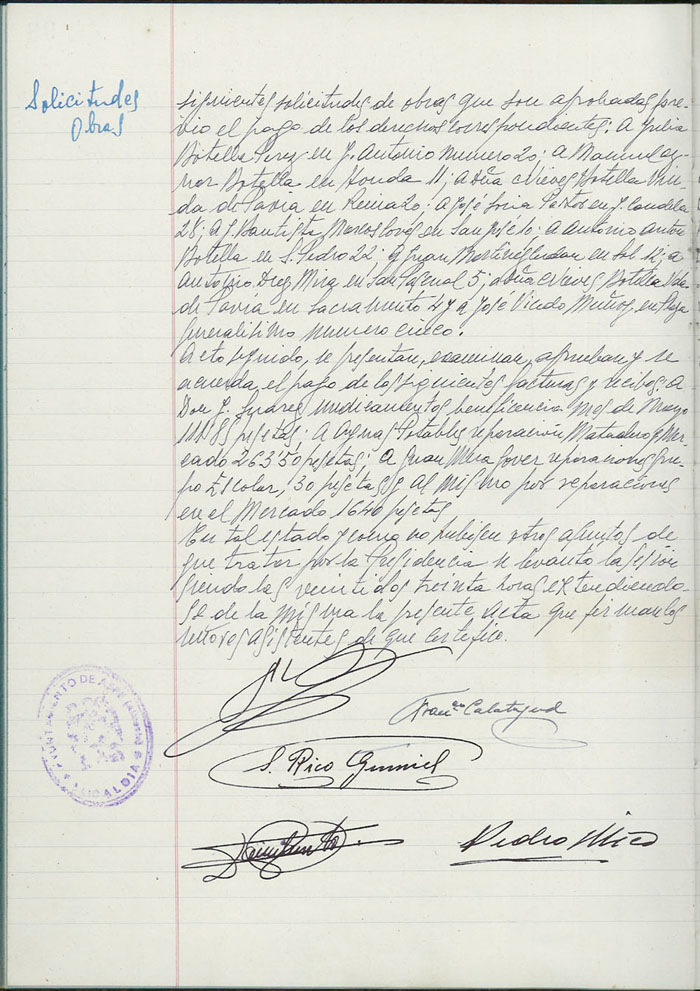 Solicitudes
Obras
siguientes solicitudes de obras que son aprobadas pre-
vio el pago de los derechos correspondientes: A Julia
Botella Perez en J. Antonio numero 20; a Manuel
Botella en Honda 11; a Dña Nieves Botella Viu-
da de Pavia en Reina 20: a José Soria Pastor en J. Candela
28; A J. Bautista Marcos en San José 10: a Antonio Antón
Botella en S. Pedro 22; A Juan Martinez en Sol 12; a
Antonio Diez Mira en San Pascual 5; a Dña Nieves Botella Vda
de Pavía en Sacramento 47 a José Vicedo Muñoz, en Plaza
Generalísimo numero cinco.
Acto seguido, se presentan, examinan, aprueban y se
acuerda el pago de los siguientes facturas y recibos: a
Don J. Suarez medicamentos beneficencia mes de Mayo
pesetas: A Aguas Potables reparación Matadero y Mer-
cado 263'50 pesetas; a Juan Mira reparaciones Gru-
po Escolar, 30 pesetas y al mismo por reparaciones
en el Mercado 1640 pesetas
En tal estado y como no hubiesen otros asuntos de
que tratar por la Presidencia se levantó la sesión
siendo las veintidos treinta horas extendiendo-
se de la misma la presente Acta que firman los
señores asistentes de que certifico.
Franco Calatayud
S. Rico
Pedro Mico
AYUNTAMIENTO DE ASPE (Alicante)
ALCALDIA